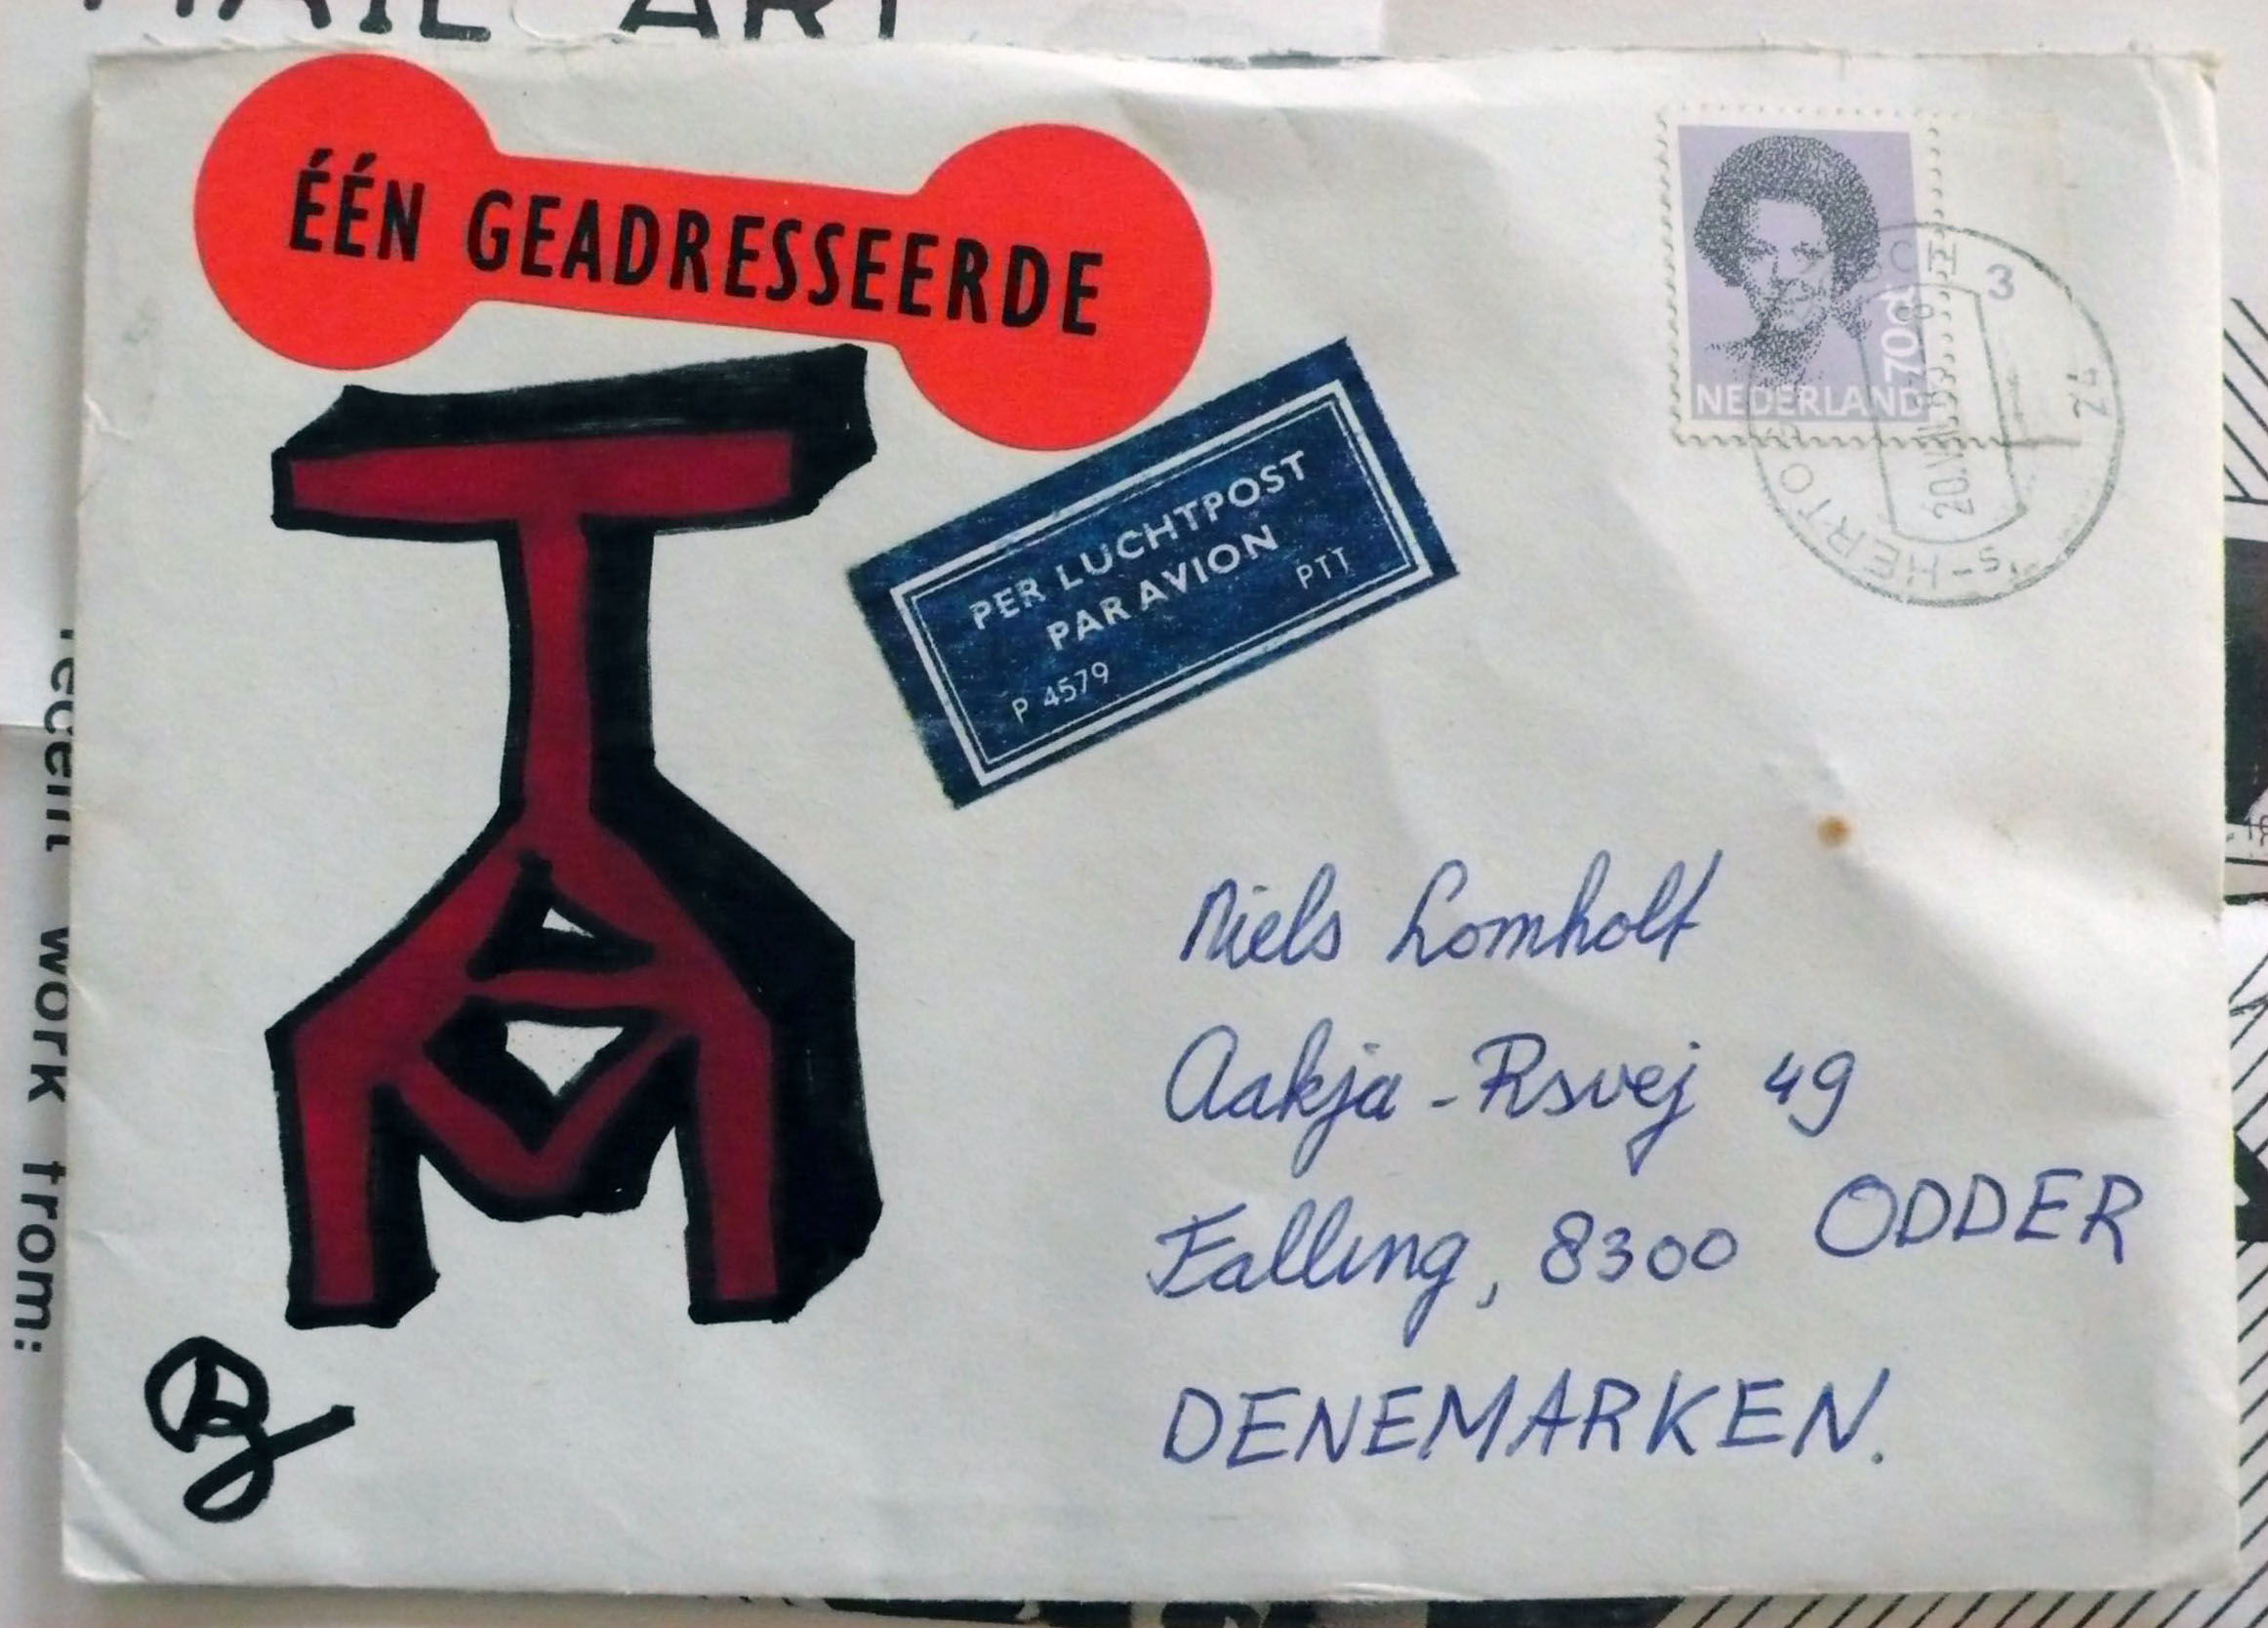 MAIL ART
ÉÉN GEADRESSEERDE
NEDERLAND
70ct
3
24
's-HERTO
20.
PER LUCHTPOST
PAR AVION
PTT
P 4579
Niels Lomholt
Aakja-Rsvej 49
Falling, 8300 ODDER
DENEMARKEN.
recent work from: